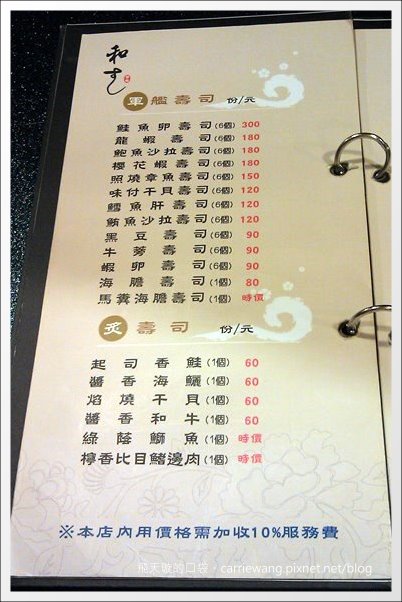 和す
軍艦壽司 份/元
鮭魚卵壽司(6個) 300
龍蝦壽司(6個) 180
鮑魚沙拉壽司(6個) 180
櫻花蝦壽司(6個) 180
照燒章魚壽司(6個) 150
味付干貝壽司(6個) 120
鱈魚肝壽司(6個) 120
鮪魚沙拉壽司(6個) 120
黑豆壽司(6個) 90
牛蒡壽司(6個) 90
蝦卵壽司(6個) 90
海膽壽司(1個) 80
馬糞海膽壽司(1個) 時價
炙壽司 份/元
起司香鮭(1個) 60
醬香海鱺(1個) 60
焰燒干貝(1個) 60
醬香和牛(1個) 60
綠蔭鰤魚(1個) 時價
檸香比目鰭邊肉(1個) 時價
※本店內用價格需加收10%服務費
飛天璇的口袋，carriewang.pixnet.net/blog